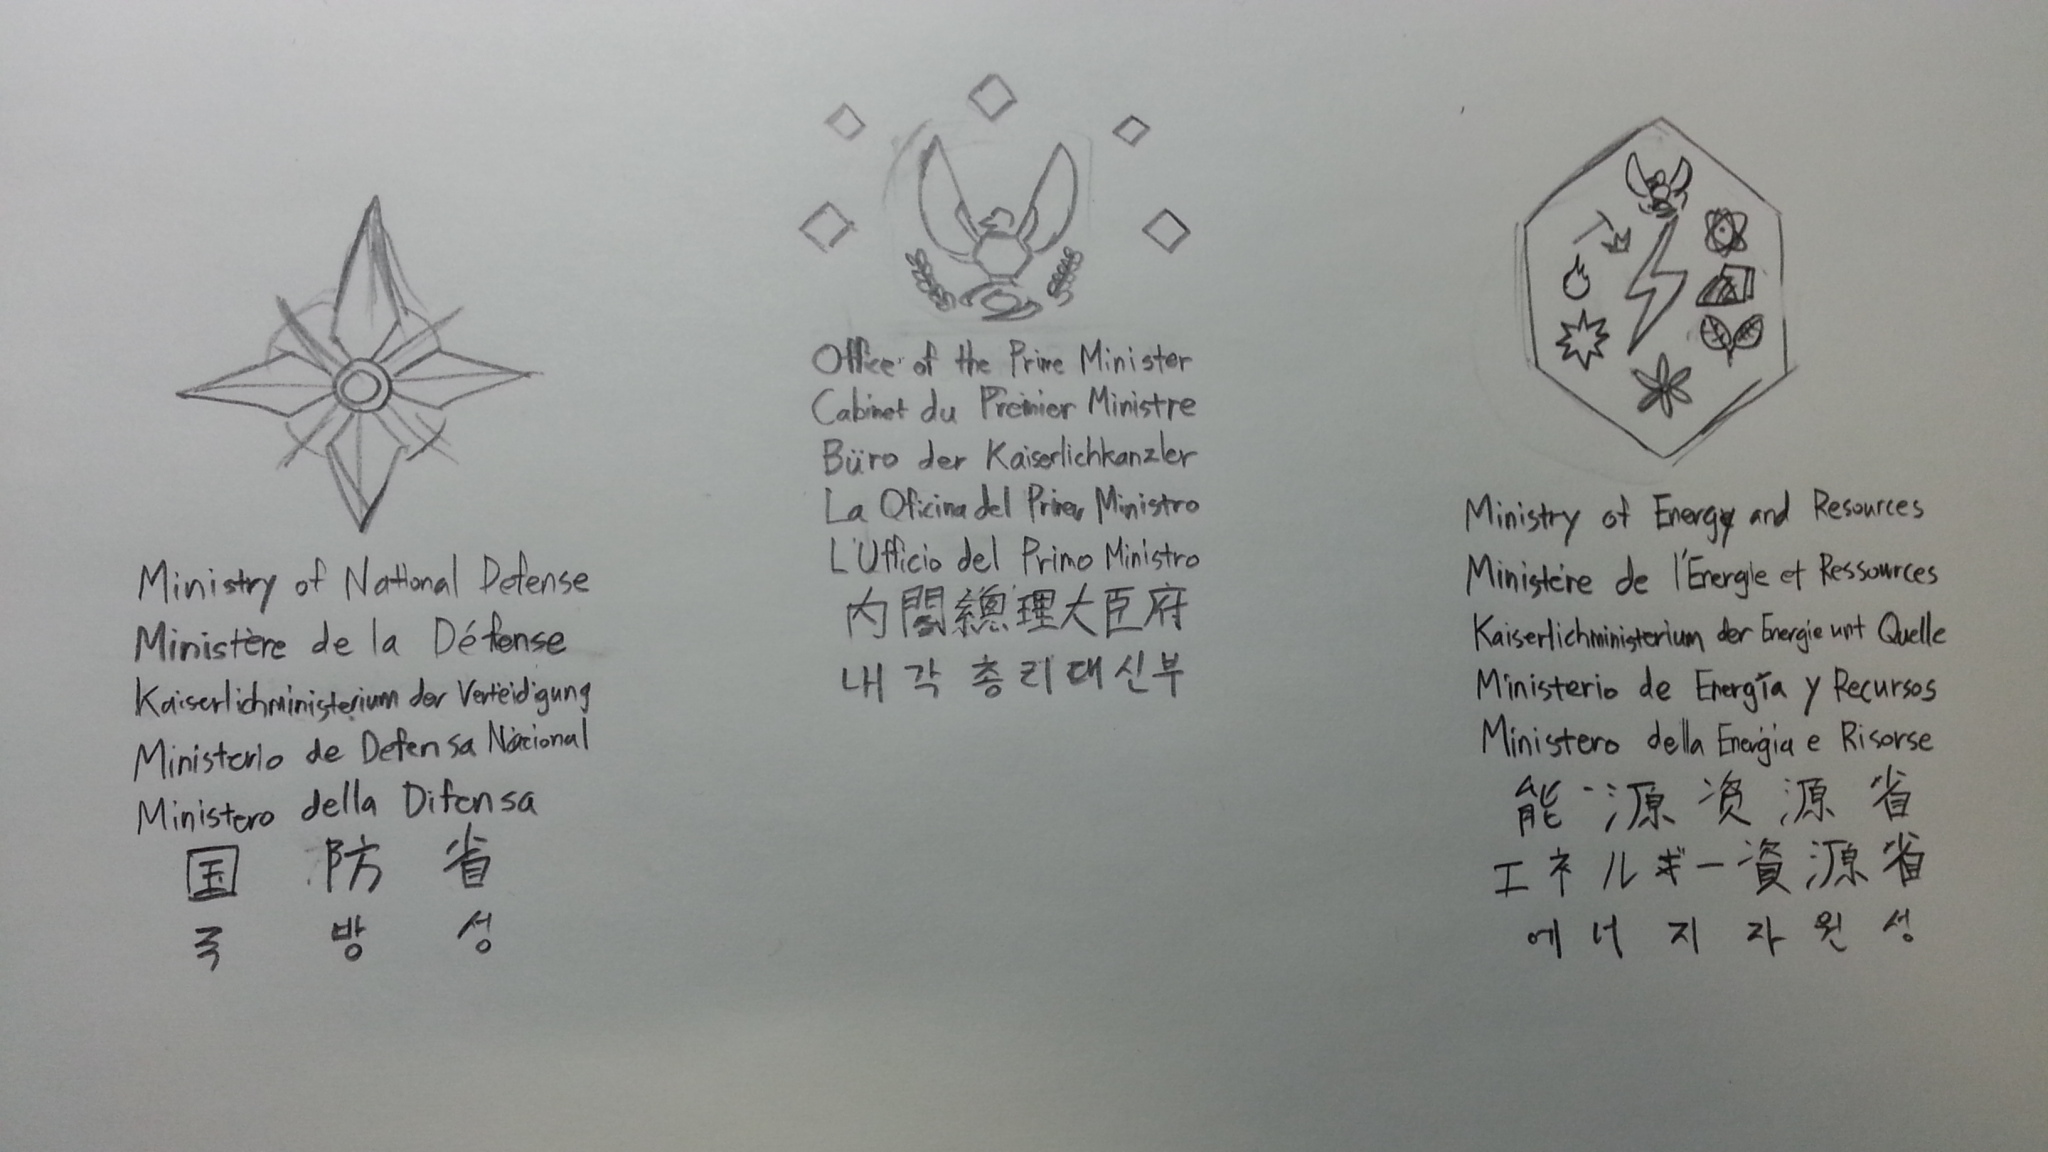 Ministry of National Defense
Ministère de la Défense
Kaiserlichministerium der Verteidigung
Ministerio de Defensa Nacional
Ministero della Difensa
国防省
국방성
Office of the Prime Minister
Cabinet du Premier Ministre
Büro der Kaiserlichkanzler
La Oficina del Primer Ministro
L'Ufficio del Primo Ministro
内閣總理大臣府
내각총리대신부
Ministry of Energy and Resources
Ministère de l'Énergie et Ressources
Kaiserlichministerium der Energie unt Quelle
Ministerio de Energía y Recursos
Ministero della Energia e Risorse
能源资源省
エネルギー資源省
에너지자원성